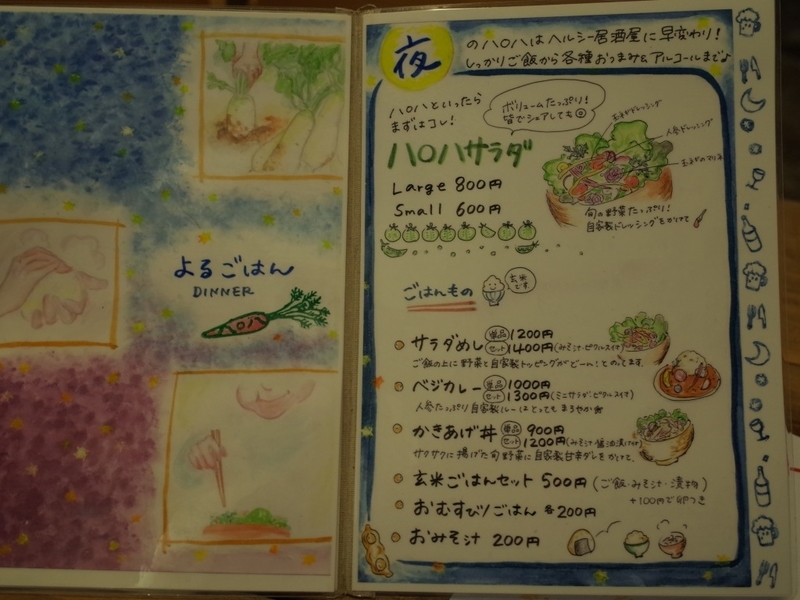 よるごはん
DINNER
ハロハ
夜
のハロハはヘルシー居酒屋に早変わり!
しっかりご飯から各種おつまみ&アルコールまで♪
ハロハといったら
まずはコレ!
ボリュームたっぷり!
皆でシェアしても☺
ハロハサラダ
Large 800円
Small 600円
玉ねぎドレッシング
人参ドレッシング
旬の野菜たっぷり!
自家製ドレッシングをかけて
ごはんもの
玄米です
サラダめし 単品 1200円
セット 1400円(みそ汁・ピクルス付)
ご飯の上に野菜と自家製トッピングがどーんっとのってます。
ベジカレー 単品 1000円
セット 1300円(ミニサラダ・ピクルス付)
人参たっぷり自家製ルーはとってもまろやか
かきあげ丼 単品 900円
セット 1200円(みそ汁・醤油漬け付)
サクサクに揚げた旬野菜に自家製甘辛ダレをかけて。
玄米ごはんセット 500円(ご飯・みそ汁・漬物)
+100円で卵つき
おむすび/ごはん 各200円
おみそ汁 200円